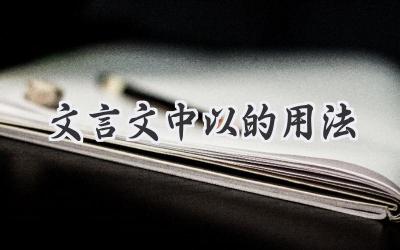 文言文中以的用法